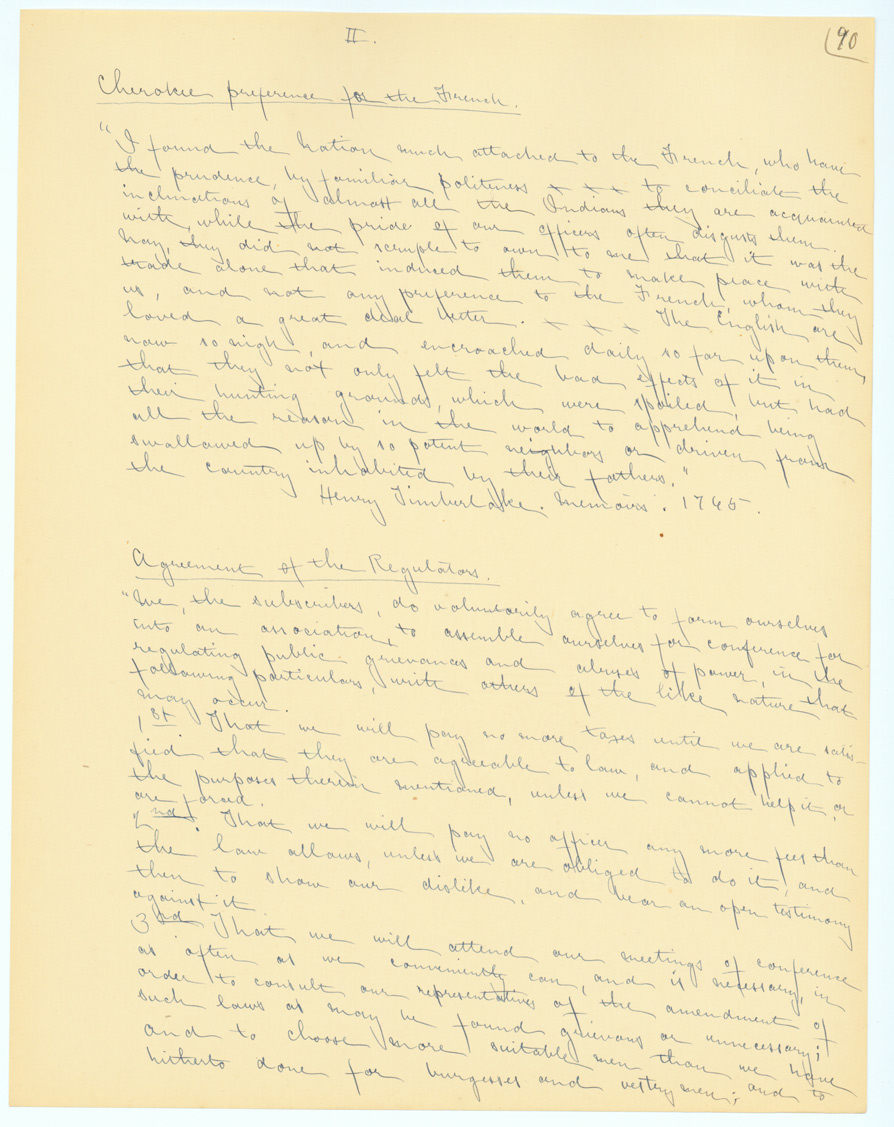 II.
90
Cherokee preference for the French.
"I found the Nation much attached to the French, who have
the prudence, by familiar politeness x x x to conciliate the
inclinations of almost all the Indians they are acquainted
with, while the pride of our officers often disgusts them.
Nay, they did not scruple to own to me that it was the
trade alone that induced them to make peace with
us, and not any preference to the French, whom they
loved a great deal better. x x x The English are
now so nigh, and encroached daily so far upon them,
that they not only felt the bad effects of it in
their hunting grounds, which were spoiled, but had
all the reason in the world to apprehend being
swallowed up by so potent neighbors or driven from
the country inhabited by their fathers."
Henry Timberlake. Memoirs. 1765.
Agreement of the Regulators.
"We, the subscribers, do voluntarily agree to form ourselves
into an association, to assemble ourselves for conference for
regulating public grievances and abuses of power, in the
following particulars, with others of the like nature that
may occur.
1st That we will pay no more taxes until we are satis-
fied that they are agreeable to law, and applied to
the purposes therein mentioned, unless we cannot help it, or
are forced.
2nd. That we will pay no officer any more fees than
the law allows, unless we are obliged to do it, and
then to show our dislike, and bear an open testimony
against it
3rd That we will attend our meetings of conference
as often as we conveniently can, and is necessary, in
order to consult our representatives of the amendment of
such laws as may be found grievous or unnecessary;
and to choose more suitable men than we have
hitherto done for burgesses and vestrymen; and to